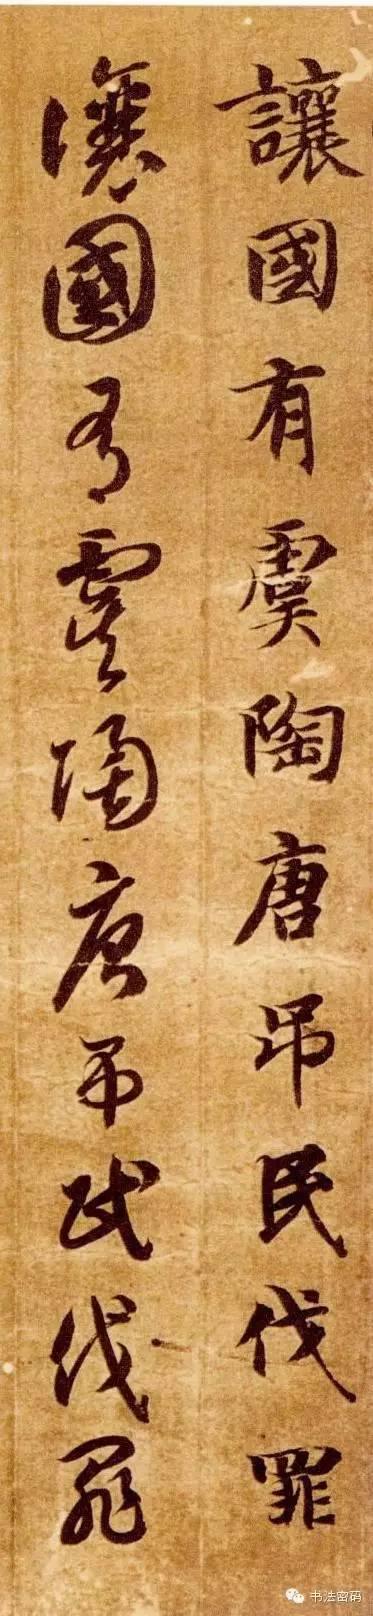 讓國有虞陶唐吊民伐罪
讓國有虞陶唐吊民伐罪
书法密码